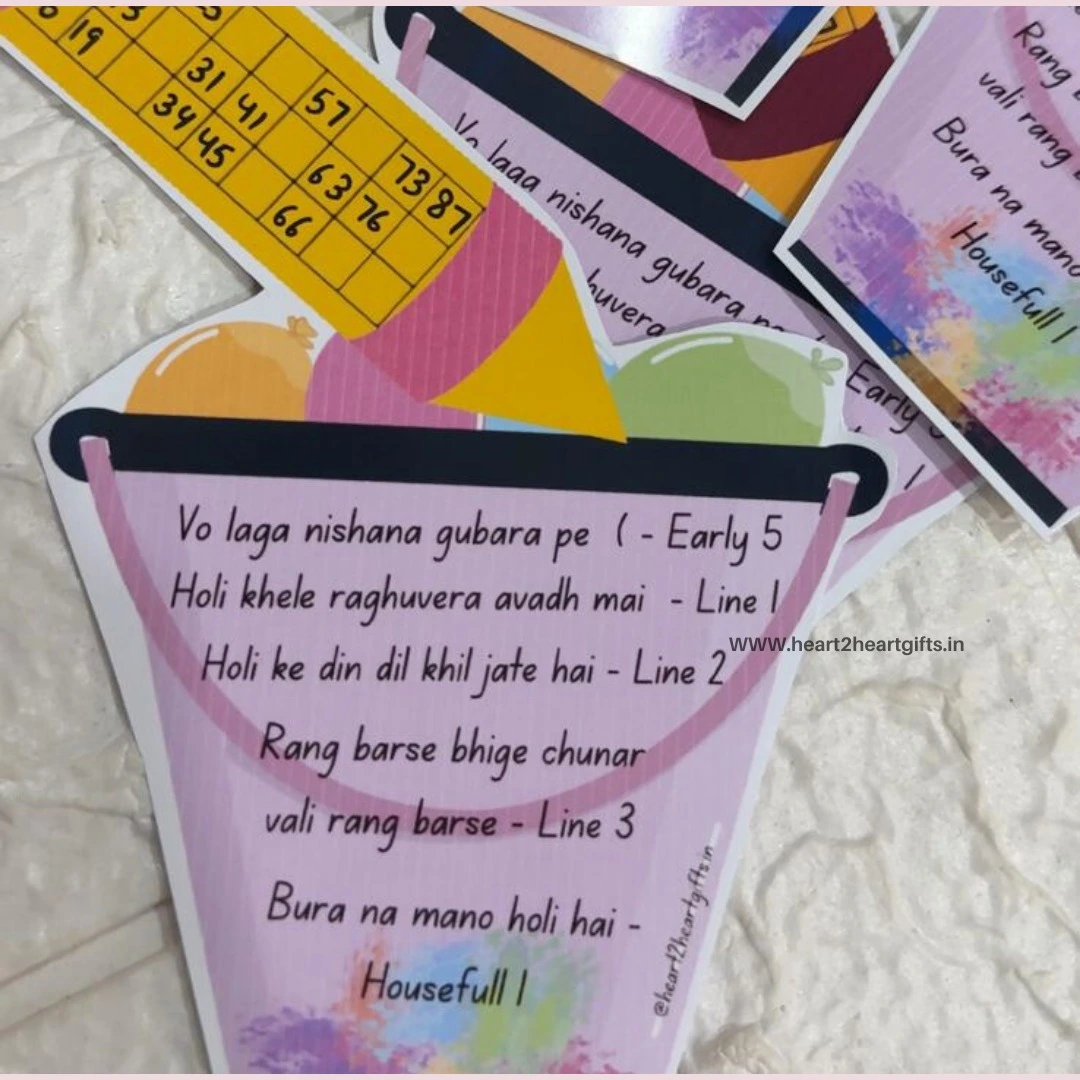 19
31 41 57
34 45 63 76 73 87
66
Vo laga nishana gubara
Early 5
Rang
vali rang
Bura na mano
Housefull 1
Vo laga nishana gubara pe ( - Early 5
Holi khele raghuvera avadh mai - Line 1
www.heart2heartgifts.in
Holi ke din dil khil jate hai - Line 2
Rang barse bhige chunar
vali rang barse - Line 3
Bura na mano holi hai -
Housefull 1
@heart2heartgifts.in